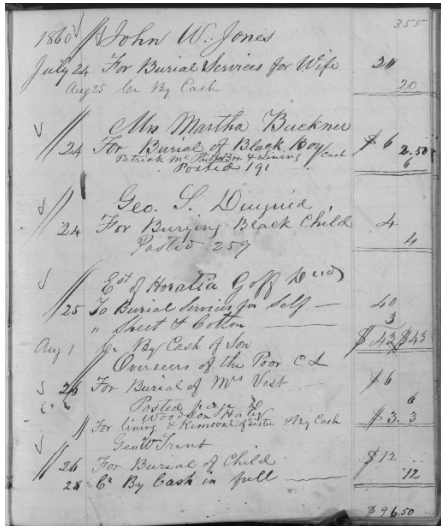 355
1860 John W. Jones
July 24 For Burial Services for Wife 20
Aug 25 Cr By Cash 20
Mrs Martha Buckner
24 For Burial of Black Boy $6
Patrick Mc Box & Lining Cash 2.50
Posted 191 6
Geo. S. Diuguid
24 For Burying Black Child 4
Posted 259 4
Est of Horatia Goff Decd
25 To Burial Services for Self 40
" Sheet & Cotton 3
Aug 1 Cr By Cash of Son $43 $43
Overseers of the Poor C L
26 For Burial of Mrs Vest $6
Posted 6
For lining & Removal & By Cash $3. 3
Geo W Trent
26 For Burial of Child $12
28 Cr By Cash in full 12
$96.50